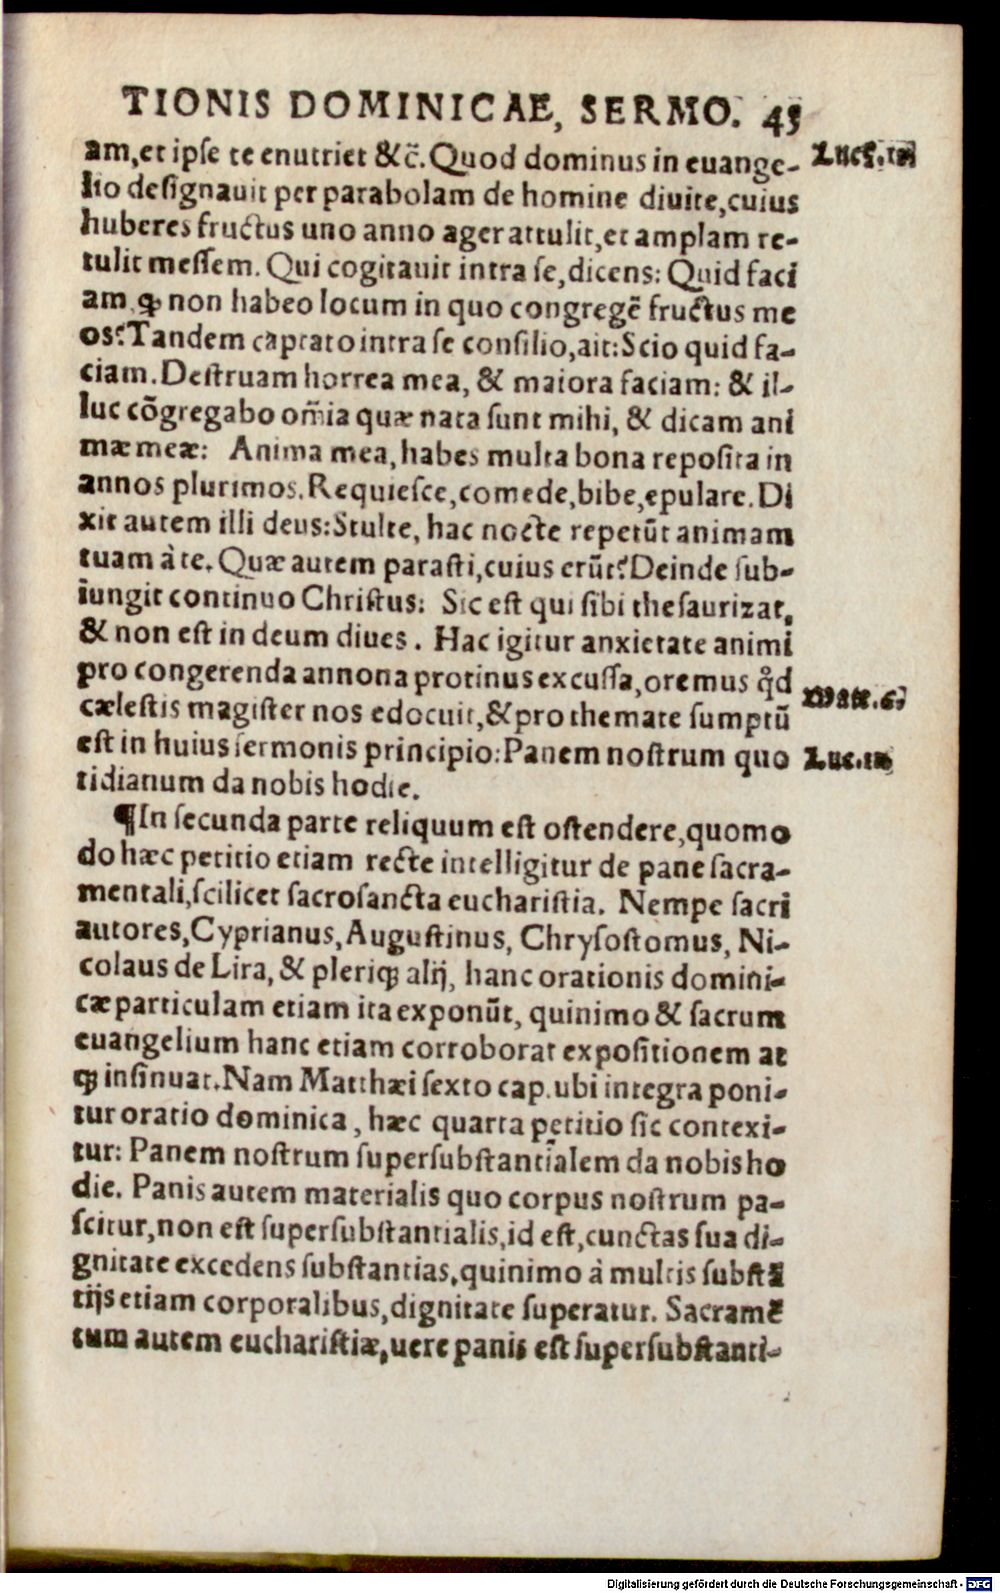 TIONIS DOMINICAE, SERMO. 45
am, et ipse te enutriet &c̃. Quod dominus in euange-
lio designauit per parabolam de homine diuite, cuius
huberes fructus uno anno ager attulit, et amplam re-
tulit messem. Qui cogitauit intra se, dicens: Quid faci
am, ꝙ non habeo locum in quo congregẽ fructus me
os? Tandem captato intra se consilio, ait: Scio quid fa-
ciam. Destruam horrea mea, & maiora faciam: & il-
luc cõgregabo om̃ia quæ nata sunt mihi, & dicam ani
mæ meæ: Anima mea, habes multa bona reposita in
annos plurimos. Requiesce, comede, bibe, epulare. Di
xit autem illi deus: Stulte, hac nocte repetũt animam
tuam à te. Quæ autem parasti, cuius erũt? Deinde sub-
iungit continuo Christus: Sic est qui sibi thesaurizat,
& non est in deum diues. Hac igitur anxietate animi
pro congerenda annona protinus excussa, oremus qͦd
cælestis magister nos edocuit, & pro themate sumptũ
est in huius sermonis principio: Panem nostrum quo
tidianum da nobis hodie.
¶In secunda parte reliquum est ostendere, quomo
do hæc petitio etiam recte intelligitur de pane sacra-
mentali, scilicet sacrosancta eucharistia. Nempe sacri
autores, Cyprianus, Augustinus, Chrysostomus, Ni-
colaus de Lira, & pleriqꝫ alij, hanc orationis domini-
cæ particulam etiam ita exponũt, quinimo & sacrum
euangelium hanc etiam corroborat expositionem at
qꝫ insinuat. Nam Matthæi sexto cap. ubi integra poni-
tur oratio dominica, hæc quarta petitio sic contexi-
tur: Panem nostrum supersubstantialem da nobis ho
die. Panis autem materialis quo corpus nostrum pa-
scitur, non est supersubstantialis, id est, cunctas sua di-
gnitate excedens substantias, quinimo à multis substã
tijs etiam corporalibus, dignitate superatur. Sacramẽ
tum autem eucharistiæ, uere panis est supersubstanti-
Matt. 6.
Digitalisierung gefördert durch die Deutsche Forschungsgemeinschaft - DFG